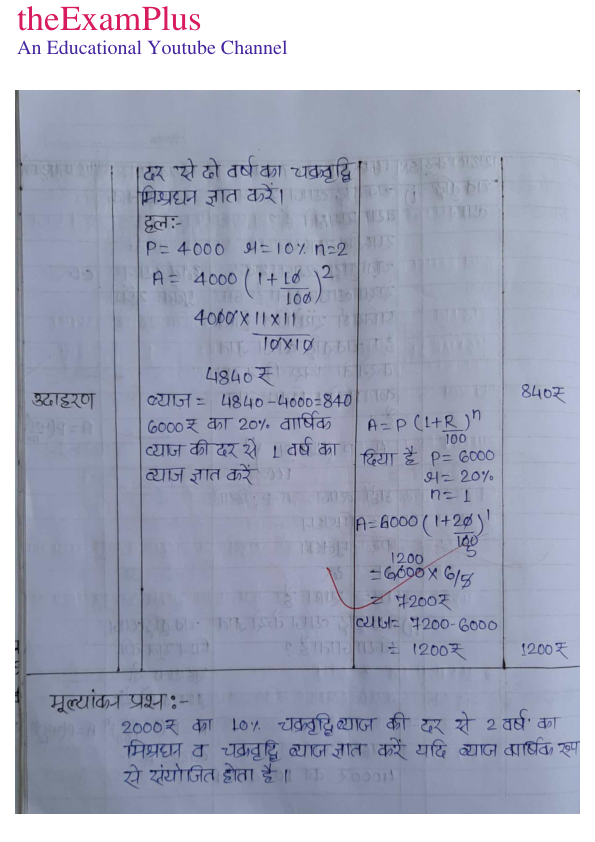 theExamPlus
An Educational Youtube Channel
दर से दो वर्ष का चक्रवृद्धि
मिश्रधन ज्ञात करें।
हलः-
P= 4000 r=10% n=2
A= 4000 (1+10/100)²
4000×11×11
10×10
4840₹
उदाहरण
ब्याज = 4840-4000=840
840₹
6000₹ का 20% वार्षिक
ब्याज की दर से 1 वर्ष का
ब्याज ज्ञात करें
A=P (1+R/100)ⁿ
दिया है P= 6000
r= 20%
n= 1
A=6000 (1+20/100)¹
5
1200
=6000×6/5
= 7200₹
ब्याज= 7200-6000
= 1200₹
1200₹
मूल्यांकन प्रश्न:-
2000₹ का 10% चक्रवृद्धि ब्याज की दर से 2 वर्ष का
मिश्रधन व चक्रवृद्धि ब्याज ज्ञात करें यदि ब्याज वार्षिक रूप
से संयोजित होता है।